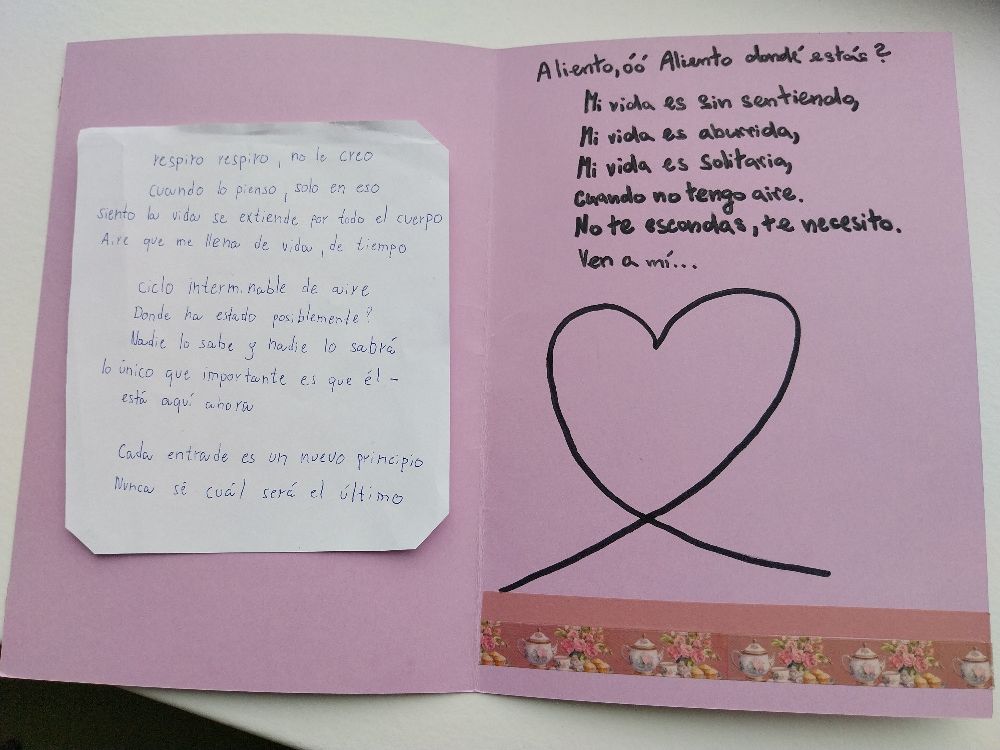 respiro respiro, no le creo
cuando lo pienso, solo en eso
siento la vida se extiende por todo el cuerpo
Aire que me llena de vida, de tiempo
ciclo interminable de aire
Donde ha estado posiblemente?
Nadie lo sabe y nadie lo sabrá
lo único que importante es que él -
está aquí ahora
Cada entrade es un nuevo principio
Nunca sé cuál será el último
Aliento, óó Aliento dondé estás?
Mi vida es sin sentiendo,
Mi vida es aburrida,
Mi vida es solitaria,
Cuando no tengo aire.
No te escondas, te necesito.
Ven a mí...